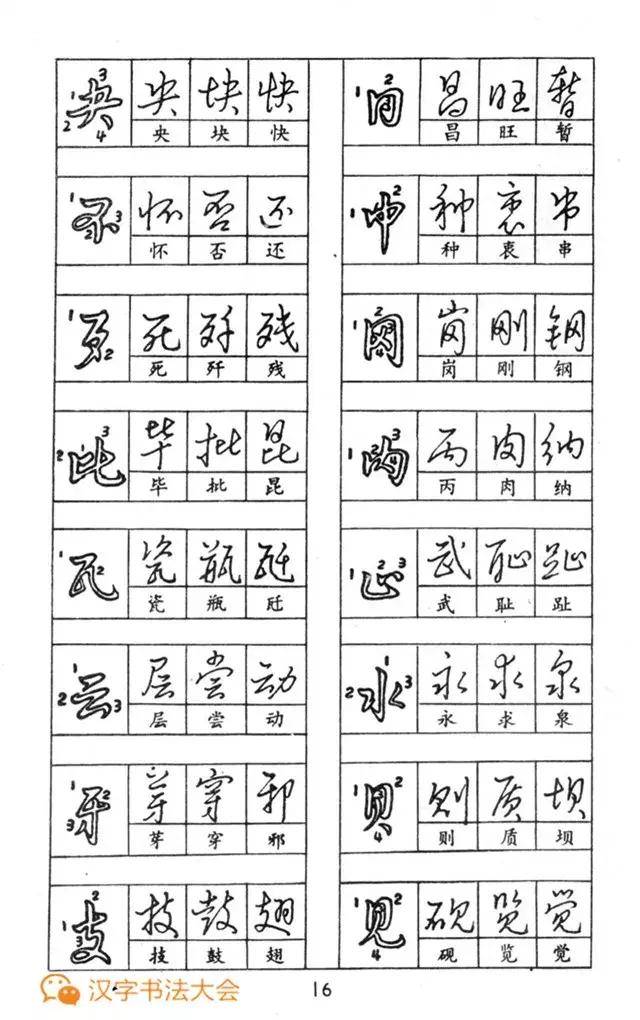 央 央 块 快
央 块 快
不 怀 否 还
怀 否 还
歹 死 歼 残
死 歼 残
比 毕 批 昆
毕 批 昆
瓦 瓷 瓶 瓩
瓷 瓶 瓩
云 层 尝 动
层 尝 动
牙 芽 穿 邪
芽 穿 邪
支 技 鼓 翅
技 鼓 翅
日 昌 旺 暂
昌 旺 暂
中 种 衷 串
种 衷 串
冈 岗 刚 钢
岗 刚 钢
内 丙 肉 纳
丙 肉 纳
止 武 耻 趾
武 耻 趾
水 永 求 泉
永 求 泉
贝 则 质 坝
则 质 坝
见 砚 览 觉
砚 览 觉
汉字书法大会
16